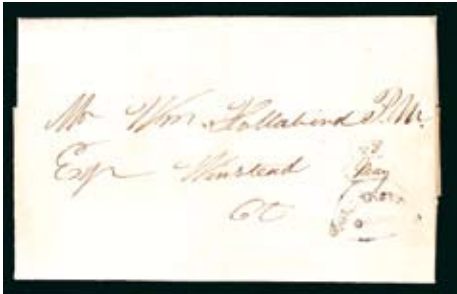 Mr Wm Hollabird P.M.
Winstead
Ct